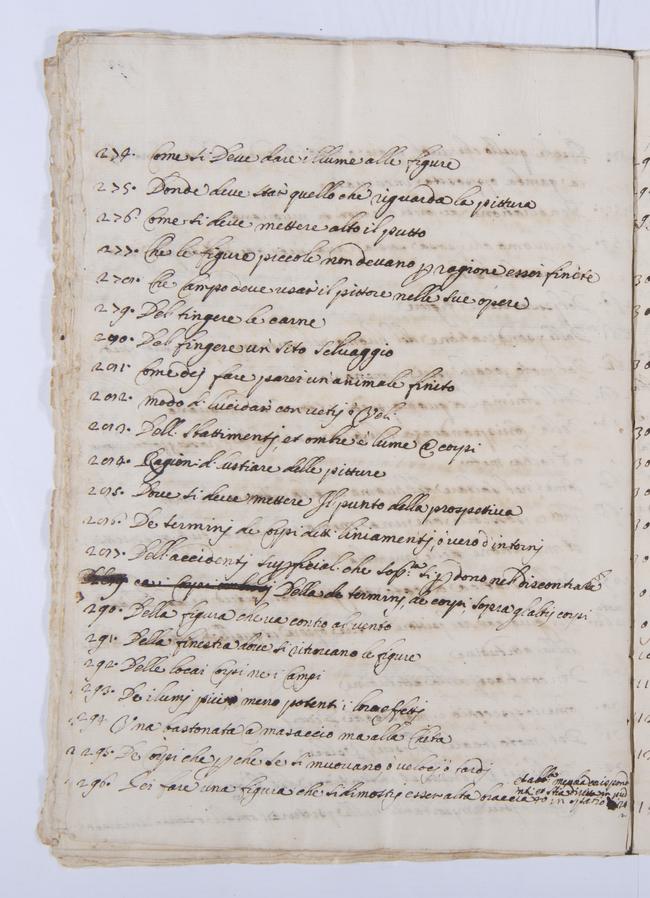 274. Come si deve dare il lume alle figure
275. Donde deve star quello che riguarda la pittura
276. Come si deve mettere alto il putto
277. Che le figure piccole non devano p ragione esser finite
278. Che campo deve usar il pittore nelle sue opere
279. Del tingere le carne
280. Del fingere un sito selvaggio
281. Come dej fare parer un animale finto
282. modo di lucidar con vetrj o Veli
283. Delli sbattimentj, et ombre e lume
284. di lustrare delle pitture
285. Dove si deve mettere Il punto della prospettiva
286. De terminj de corpi detti liniamentj, o vero dintornj
287. Dell'accidentj supficial che si p dono nel discontrasi
Della de terminj de corpi sopra gl'altrj corpi
290. Della figura che va contro al vento
291. Della finestra dove si ritrovano le figure
292. Delle locar corpi ne i campi
293. De i lumj piu e meno potenti i loro
294. Una bastonata a masaccio ma alla cheta
295. De corpi che p che se si muovano o veloci o tardj
296. Per fare una figura che si dimostrj esser alta braccia 40 in spatio